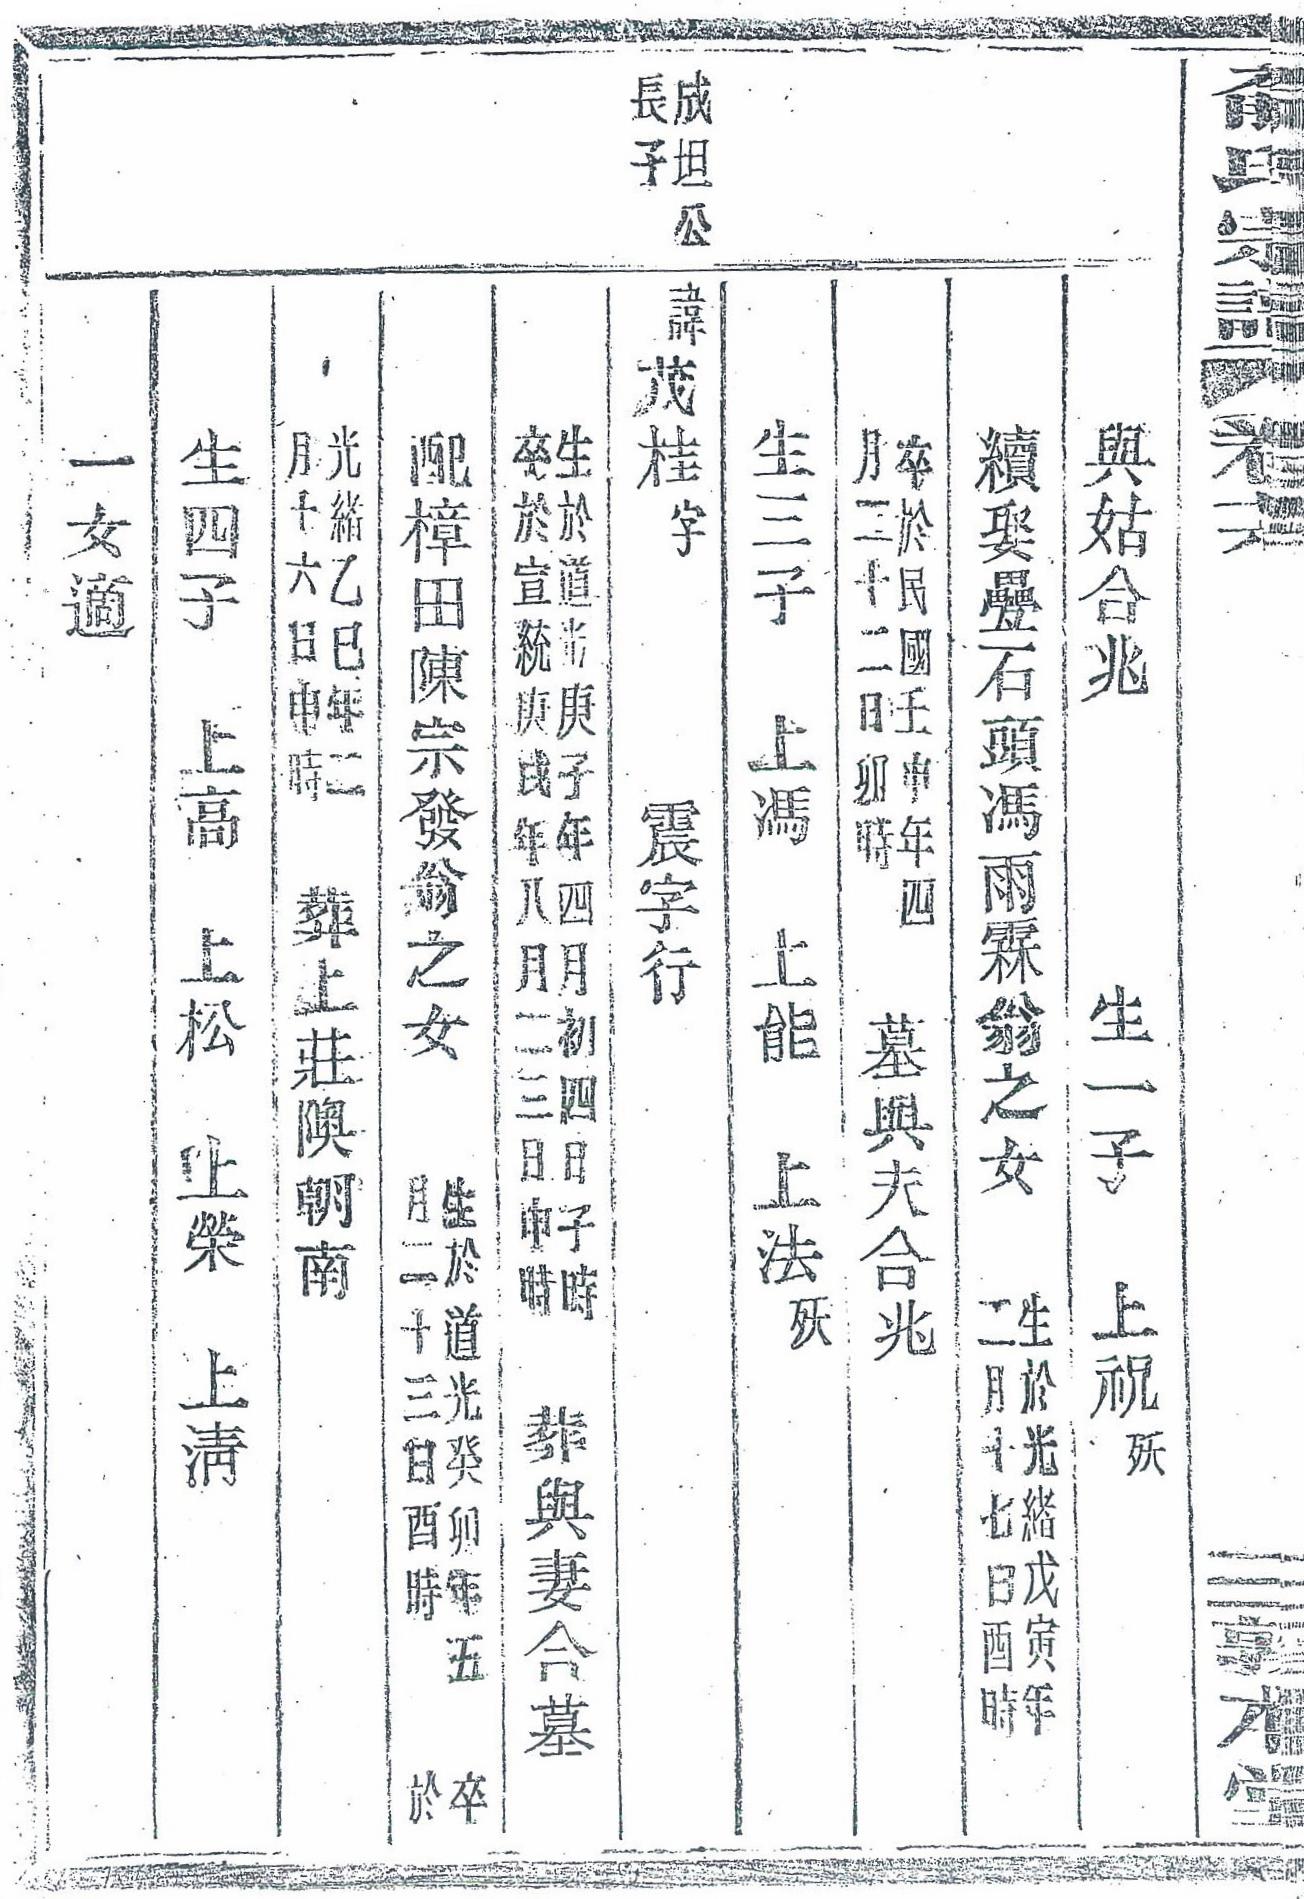 氏宗譜 卷六
與姑合兆 生一子 上祝殀
續娶疊石頭馮雨霖翁之女 生於光緒戊寅年二月十七日酉時
卒於民國壬申年四月二十二日卯時 墓與夫合兆
生三子 上馮 上能 上法殀
成坦公長子
諱茂桂字 震字行
生於道光庚子年四月初四日子時卒於宣統庚戌年八月二三日申時 葬與妻合墓
配樟田陳宗發翁之女 生於道光癸卯年五月二十三日酉時 卒於
光緒乙巳年二月十六日申時 葬上莊隩朝南
生四子 上高 上松 上榮 上淸
一女適